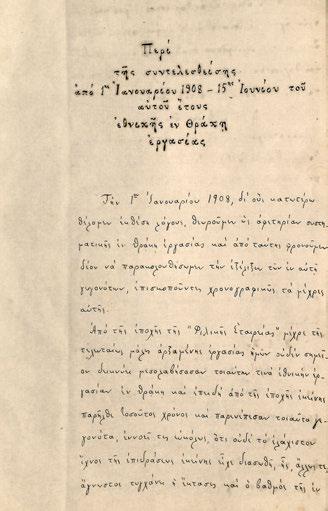 Περί
τῆς συντελεσθείσης
ἀπό 1ης Ἰανουαρίου 1908 - 15ης Ἰουνίου τοῦ
αὐτοῦ ἔτους
ἐθνικῆς ἐν Θράκῃ
ἐργασίας
Τήν 1ην Ἰανουαρίου 1908, δι' οὕς κατωτέρω
θέλομεν ἐκθέσῃ λόγους, θεωροῦμεν ὡς ἀφετηρίαν συστη-
ματικῆς ἐν Θράκῃ ἐργασίας καί ἀπό ταύτης φρονοῦμεν
δέον νά παρακολουθήσωμεν τήν ἐξέλιξιν τῶν ἐν αὐτῇ
γεγονότων, ἐπισκοποῦντες χρονογραφικῶς τά μέχρις
αὐτῆς.
Ἀπό τῆς ἐποχῆς τῆς "Φιλικῆς Ἑταιρείας" μέχρι τῆς
τελευταίως μόλις ἀρξαμένης ἐργασίας ἡμῶν οὐδέν σημεῖ-
ον δεικνύει μεσολαβήσασαν τοιαύτην τινά ἐθνικήν ἐρ-
γασίαν ἐν Θράκῃ καί ἐπειδή ἀπό τῆς ἐποχῆς ἐκείνης
παρῆλθε τοσοῦτος χρόνος καί παρενέπεσαν τοιαῦτα γε-
γονότα, ἐννοεῖ τις εὐκόλως, ὅτι οὐδέ τό ἐλάχιστον
ἴχνος τῆς ἐπιδράσεως ἐκείνης εἶχε διασωθῆ, ἧς, ἄλλως τε
ἄγνωστος τυγχάνει ἡ ἔκτασις καί ὁ βαθμός τῆς ἐν